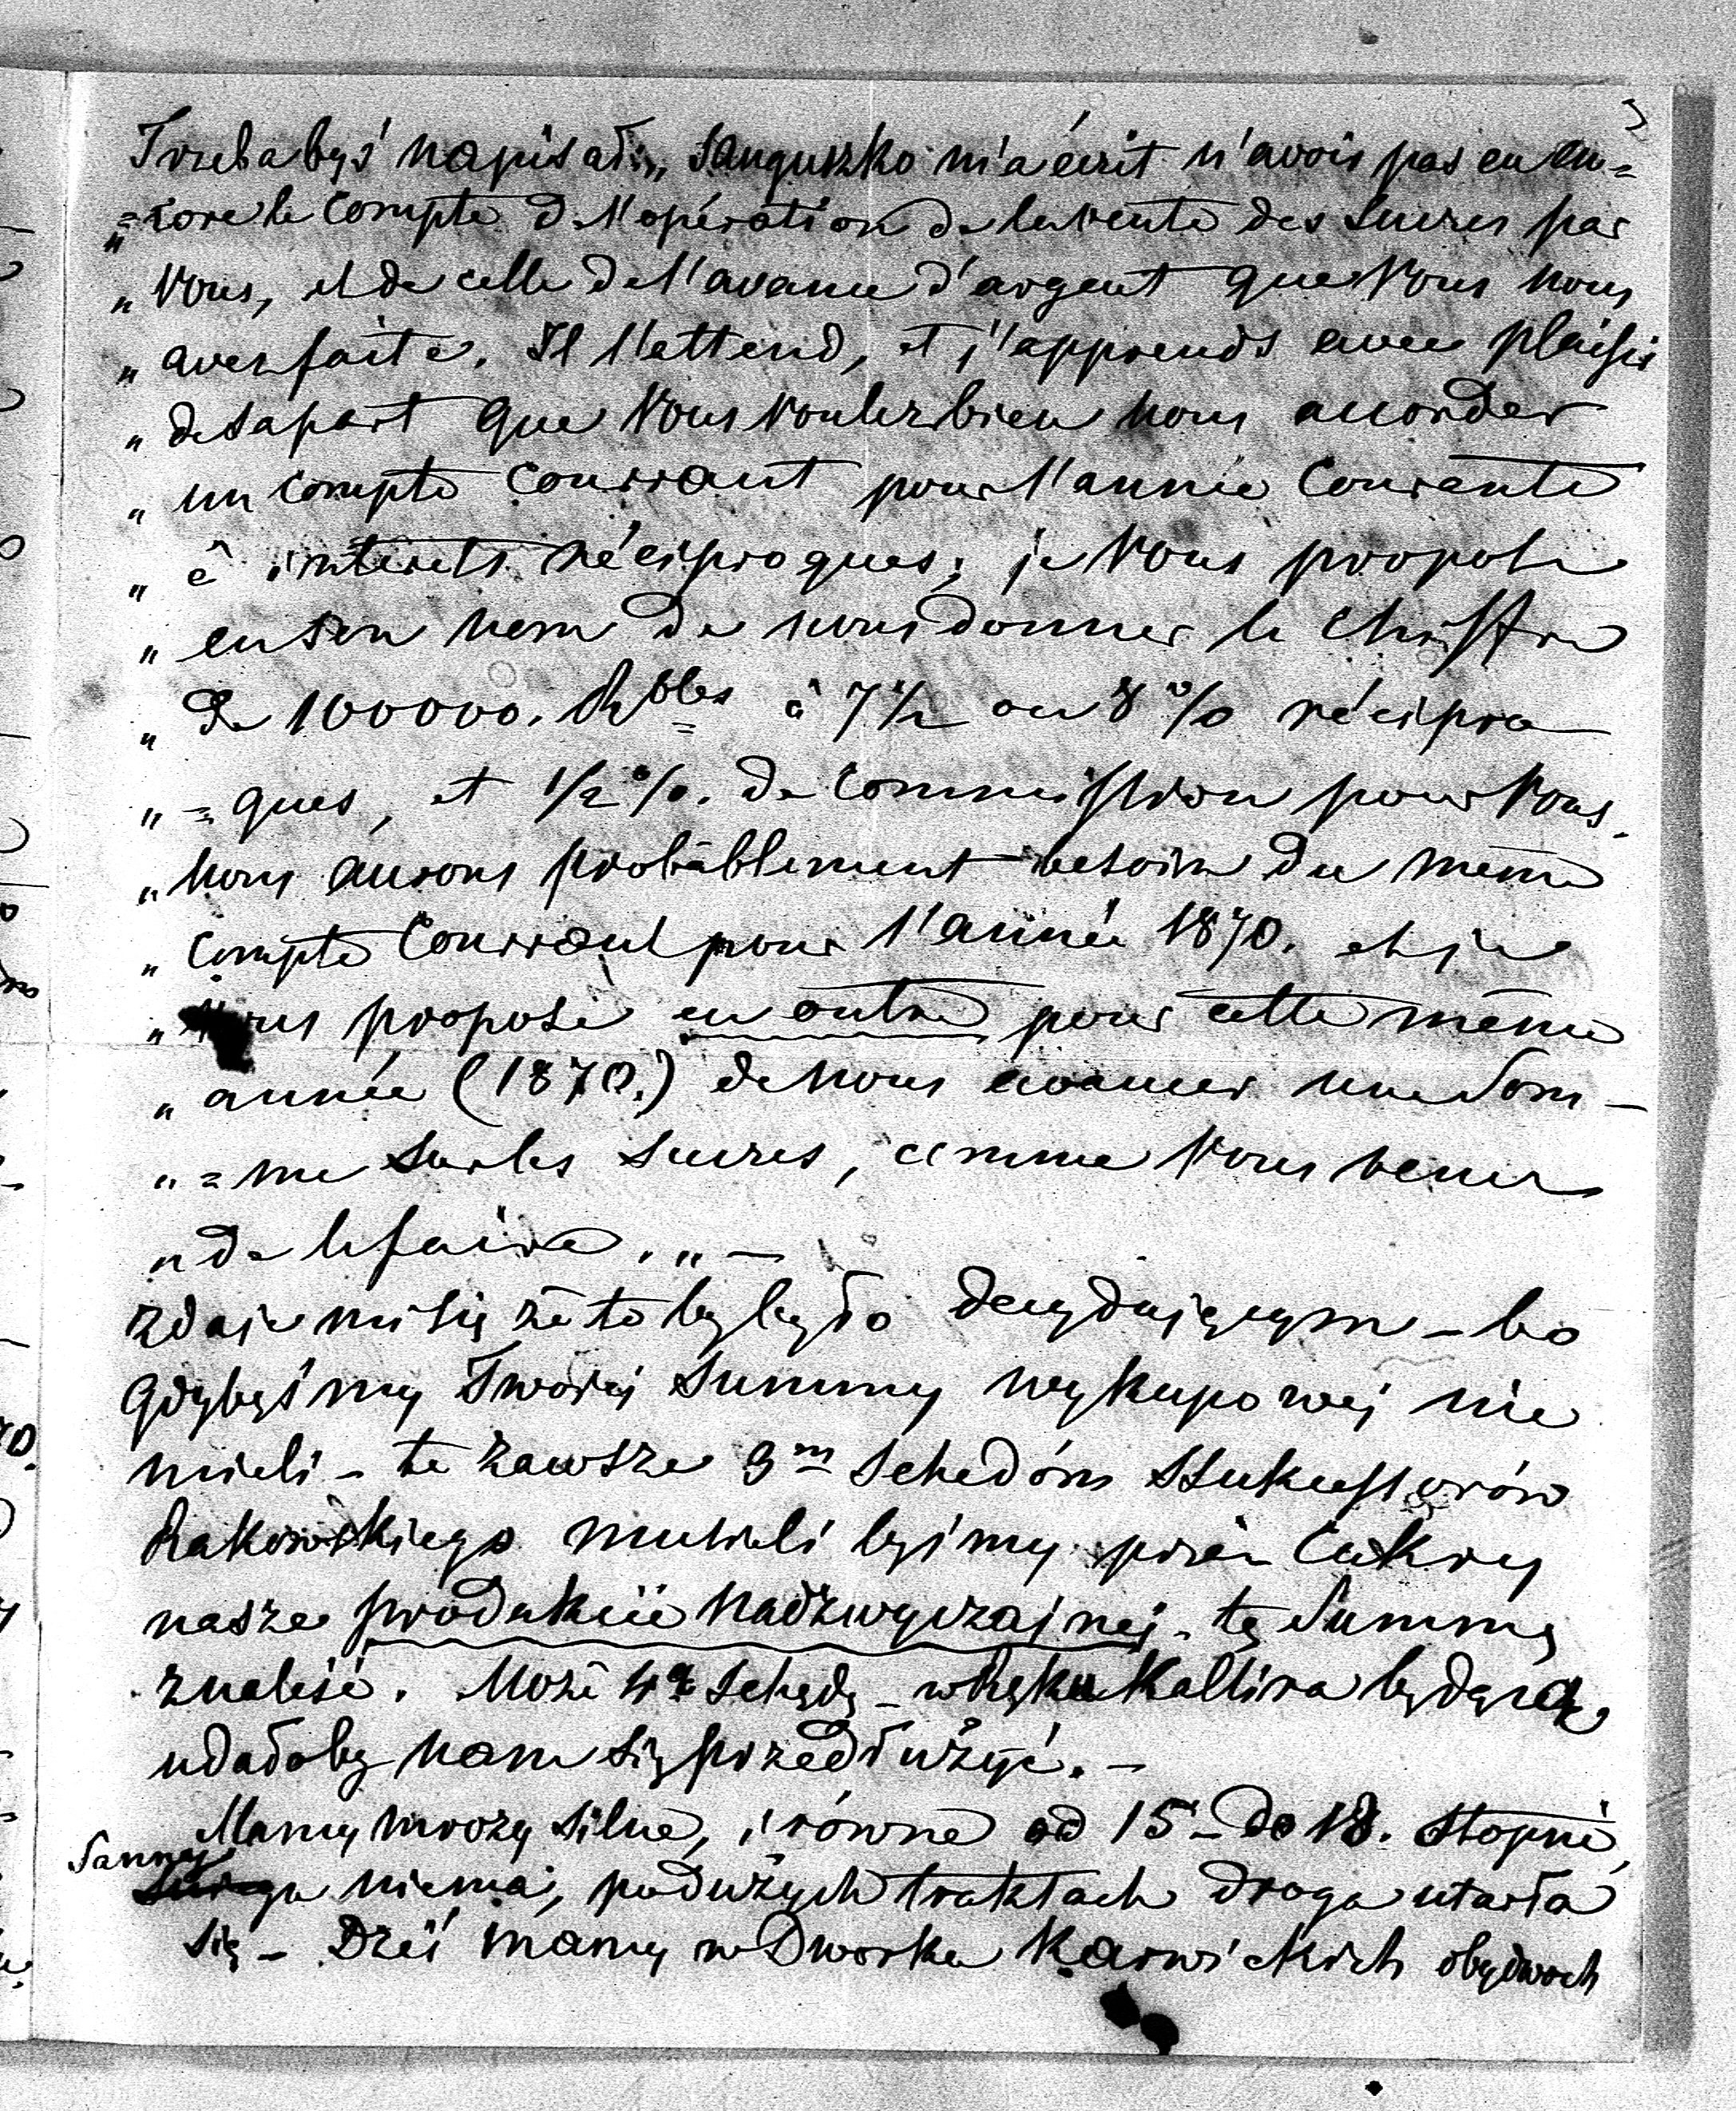 3
Trzebabyś napisał: „Sanguszko m'a écrit n'avoir pas eu en=
„=core le Compte de l'opération de la vente des Sucres par
„Vous, et de celle de l'avance d'argent que Vous nous
„avez faite. Il l'attend, et j'apprends avec plaisir
„de sa part que Vous voulez bien nous accorder
„un Compte Courrant pour l'année Courante
„à interets réciproques; je Vous propose
„en son nom de nous donner le chiffre
„de 100000. Rbles à 7 1/2 ou 8 % récipro
„=ques, et 1/2 %. de Commission pour Vous.
„Nous aurons probablement besoin du même
„Compte Courrant pour l'année 1870. et je
„Vous propose en outre pour cette même
„année (1870.) de nous avancer une Som-
„=me sur les Sucres, comme Vous venez
„de le faire." —
Zdaje mi się że to by było decydującym – bo
Gdybyśmy Twojej Summy wykupowej nie
mieli – to zawsze 3m Schedóm Sukcessorów
Rakowskiego musieli byśmy przez Cukry
nasze produkcii nadzwyczajnej – tę Summę
znaleść. Może 4ą Schedę – w ręku Kallixa będącą
udałoby nam się przedłużyć. –
Mamy mrozy silne, i równe od 15 – do 18. stopni,
Sanny
niema, po dużych traktach droga utarła
się – Dziś mamy w Dworku Karwickich obydwoch